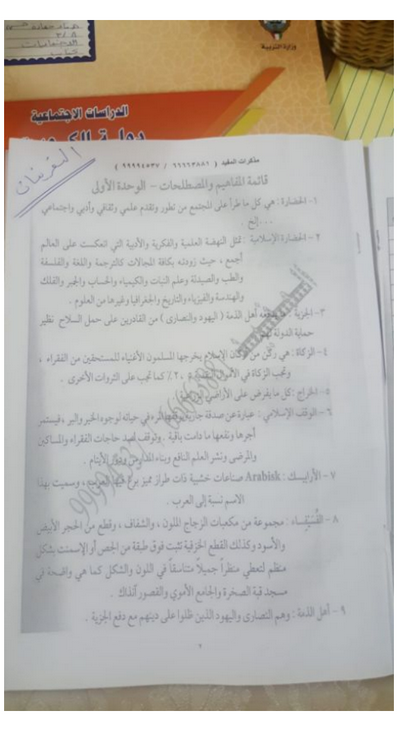 وزارة التربية
الدراسات الاجتماعية
التعريفات
مذكرات المفيد ( ٦٦٦٦٣٨٨١ / ٩٩٩٩٤٥٣٧ )
قائمة المفاهيم والمصطلحات - الوحدة الأولى
١- الحضارة : هي كل ما طرأ على المجتمع من تطور وتقدم علمي وثقافي وأدبي واجتماعي
....إلخ .
٢- الحضارة الإسلامية : تمثل النهضة العلمية والفكرية والأدبية التي انعكست على العالم
أجمع ، حيث زودته بكافة المجالات كالترجمة واللغة والفلسفة
والطب والصيدلة وعلم النبات والكيمياء والحساب والجبر والفلك
والهندسة والفيزياء والتاريخ والجغرافيا وغيرها من العلوم .
٣- الجزية : ما يدفعه أهل الذمة ( اليهود والنصارى ) من القادرين على حمل السلاح نظير
حماية الدولة لهم
٤- الزكاة : هي ركن من أركان الإسلام يخرجها المسلمون الأغنياء للمستحقين من الفقراء ،
وتجب الزكاة في كما تجب على الثروات الأخرى .
٥- الخراج : كل ما يفرض على الأراضي
٦- الوقف الإسلامي : عبارة عن صدقة جارية في حياته لوجوه الخير والبر ، فيستمر
أجرها ونفعها ما دامت باقية . وتوقف لسد حاجات الفقراء والمساكين
والمرضى ونشر العلم النافع وبناء المدارس ودور الأيتام .
٧- الأرابيسك : Arabisk صناعات خشبية ذات طراز مميز وسميت بهذا
الاسم نسبة إلى العرب .
٨- الفُسَيْفِسَاء : مجموعة من مكعبات الزجاج الملون ، والشفاف ، وقطع من الحجر الأبيض
والأسود وكذلك القطع الخزفية تثبت فوق طبقة من الجص أو الإسمنت بشكل
منظم لتعطي منظراً جميلاً متناسقاً في اللون والشكل كما هي واضحة في
مسجد قبة الصخرة والجامع الأموي والقصور آنذاك .
٩- أهل الذمة : وهم النصارى واليهود الذين ظلوا على دينهم مع دفع الجزية .